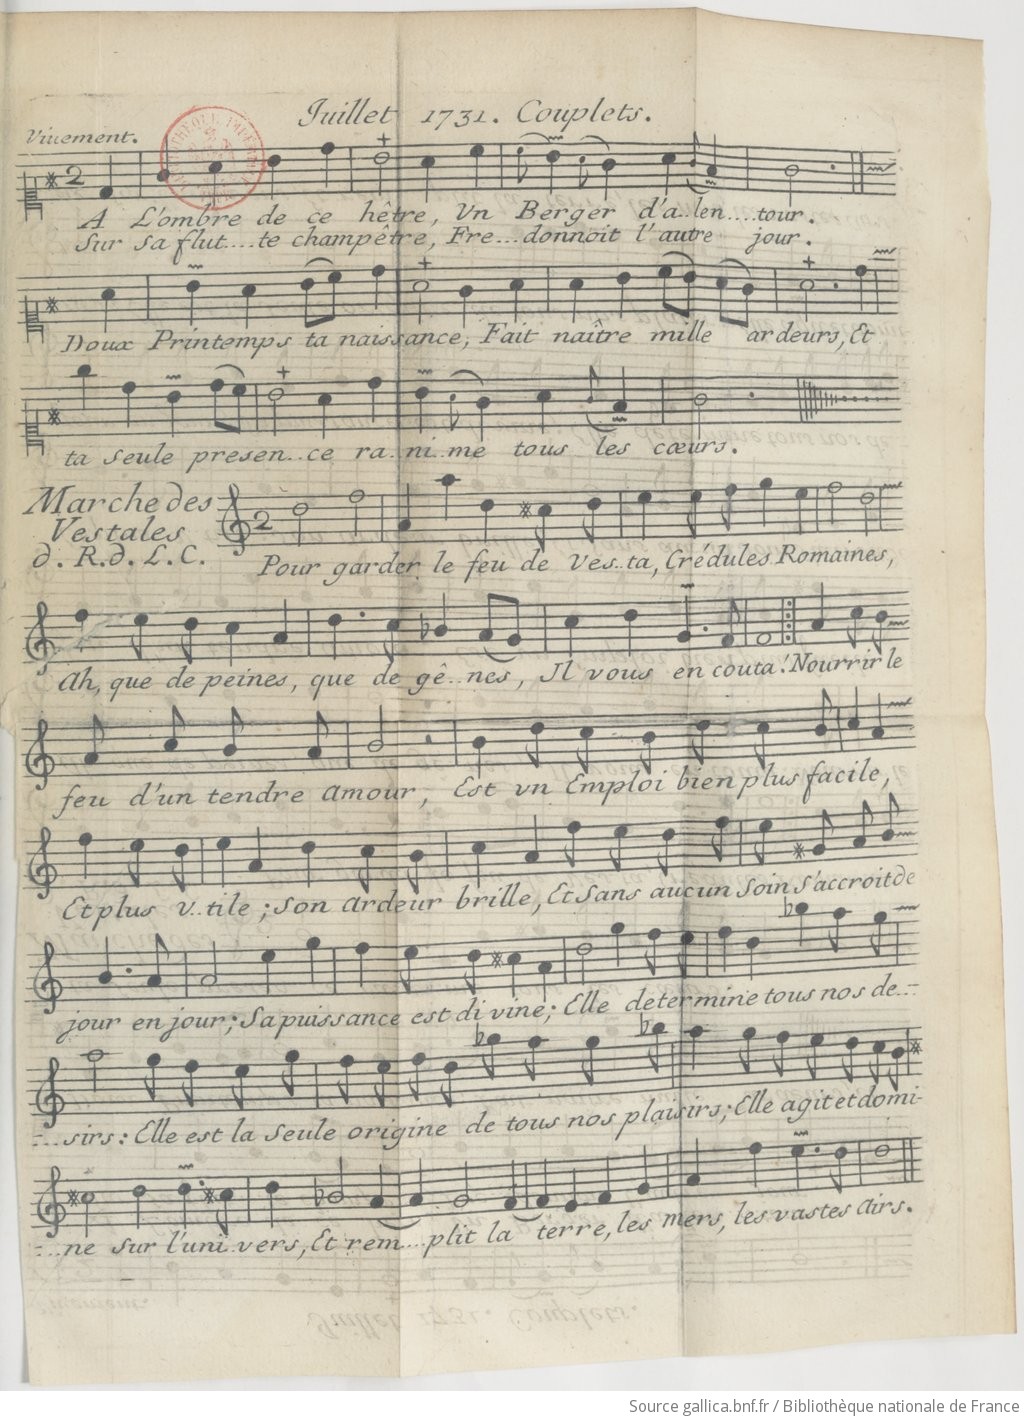 Juillet 1731. Couplets.
Viuement.
A L'ombre de ce hêtre, Vn Berger d'a..len....tour.
Sur sa flut....te champêtre, Fre...donnoit l'autre jour.
Doux Printemps ta naissance, Fait naître mille ardeurs, Et
ta seule presen...ce ra..ni..me tous les cœurs.
Marche des
Vestales
d. R. d. L. C.
Pour garder le feu de Ves..ta, Crédules Romaines,
Ah, que de peines, que de gê..nes, Il vous en couta! Nourrir le
feu d'un tendre amour, Est vn Emploi bien plus facile,
Et plus v..tile; son ardeur brille, Et sans aucun soin s'accroit de
jour en jour; Sa puissance est di vine; Elle determine tous nos de...
...sirs: Elle est la seule origine de tous nos plaisirs; Elle agit et domi-
...ne sur l'uni..vers, Et rem...plit la terre, les mers, les vastes airs.
Source gallica.bnf.fr / Bibliothèque nationale de France